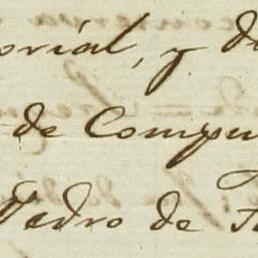 orial, y d
de Compu
Pedro de